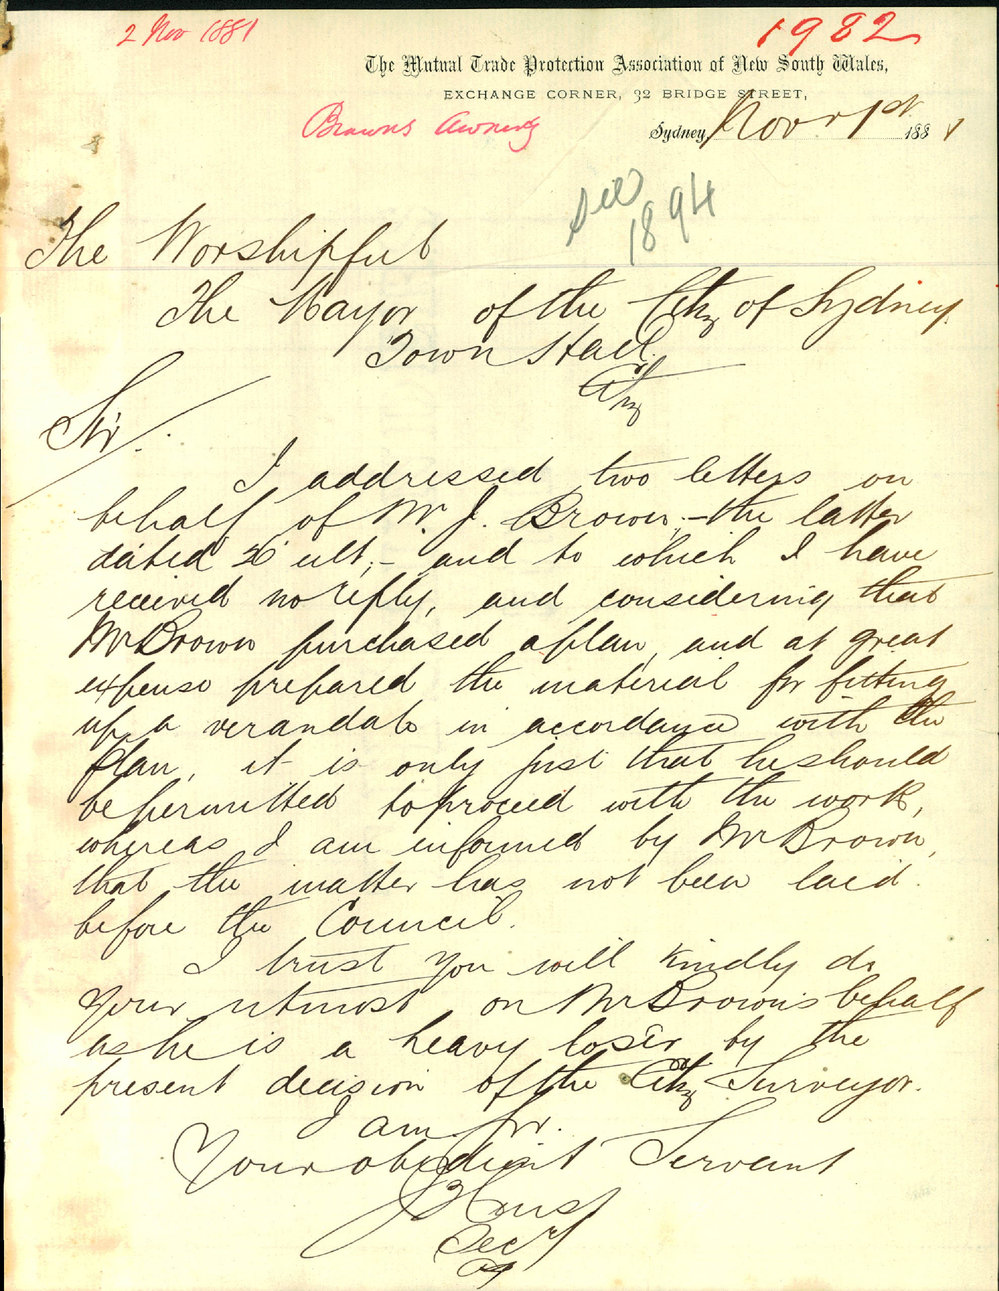 2 Nov 1881
1982
The Mutual Trade Protection Association of New South Wales,
EXCHANGE CORNER, 32 BRIDGE STREET,
Browns Awning
Sydney, Novr 1st 1881
See
1894
The Worshipful
The Mayor of the City of Sydney
Town Hall
City
Sir.
I addressed two letters on
behalf of Mr. J. Brown,- the latter
dated 26 ult,- and to which I have
received no reply, and considering that
Mr Brown purchased a plan, and at great
expense prepared the material for fitting
up a verandah in accordance with the
plan, it is only just that he should
be permitted to proceed with the work,
whereas I am informed by Mr Brown,
that the matter has not been laid
before the Council.
I trust you will kindly do
your utmost on Mr Brown's behalf
as he is a heavy loser by the
present decision of the City Surveyor.
I am Sir.
Your obedient Servant
Secy